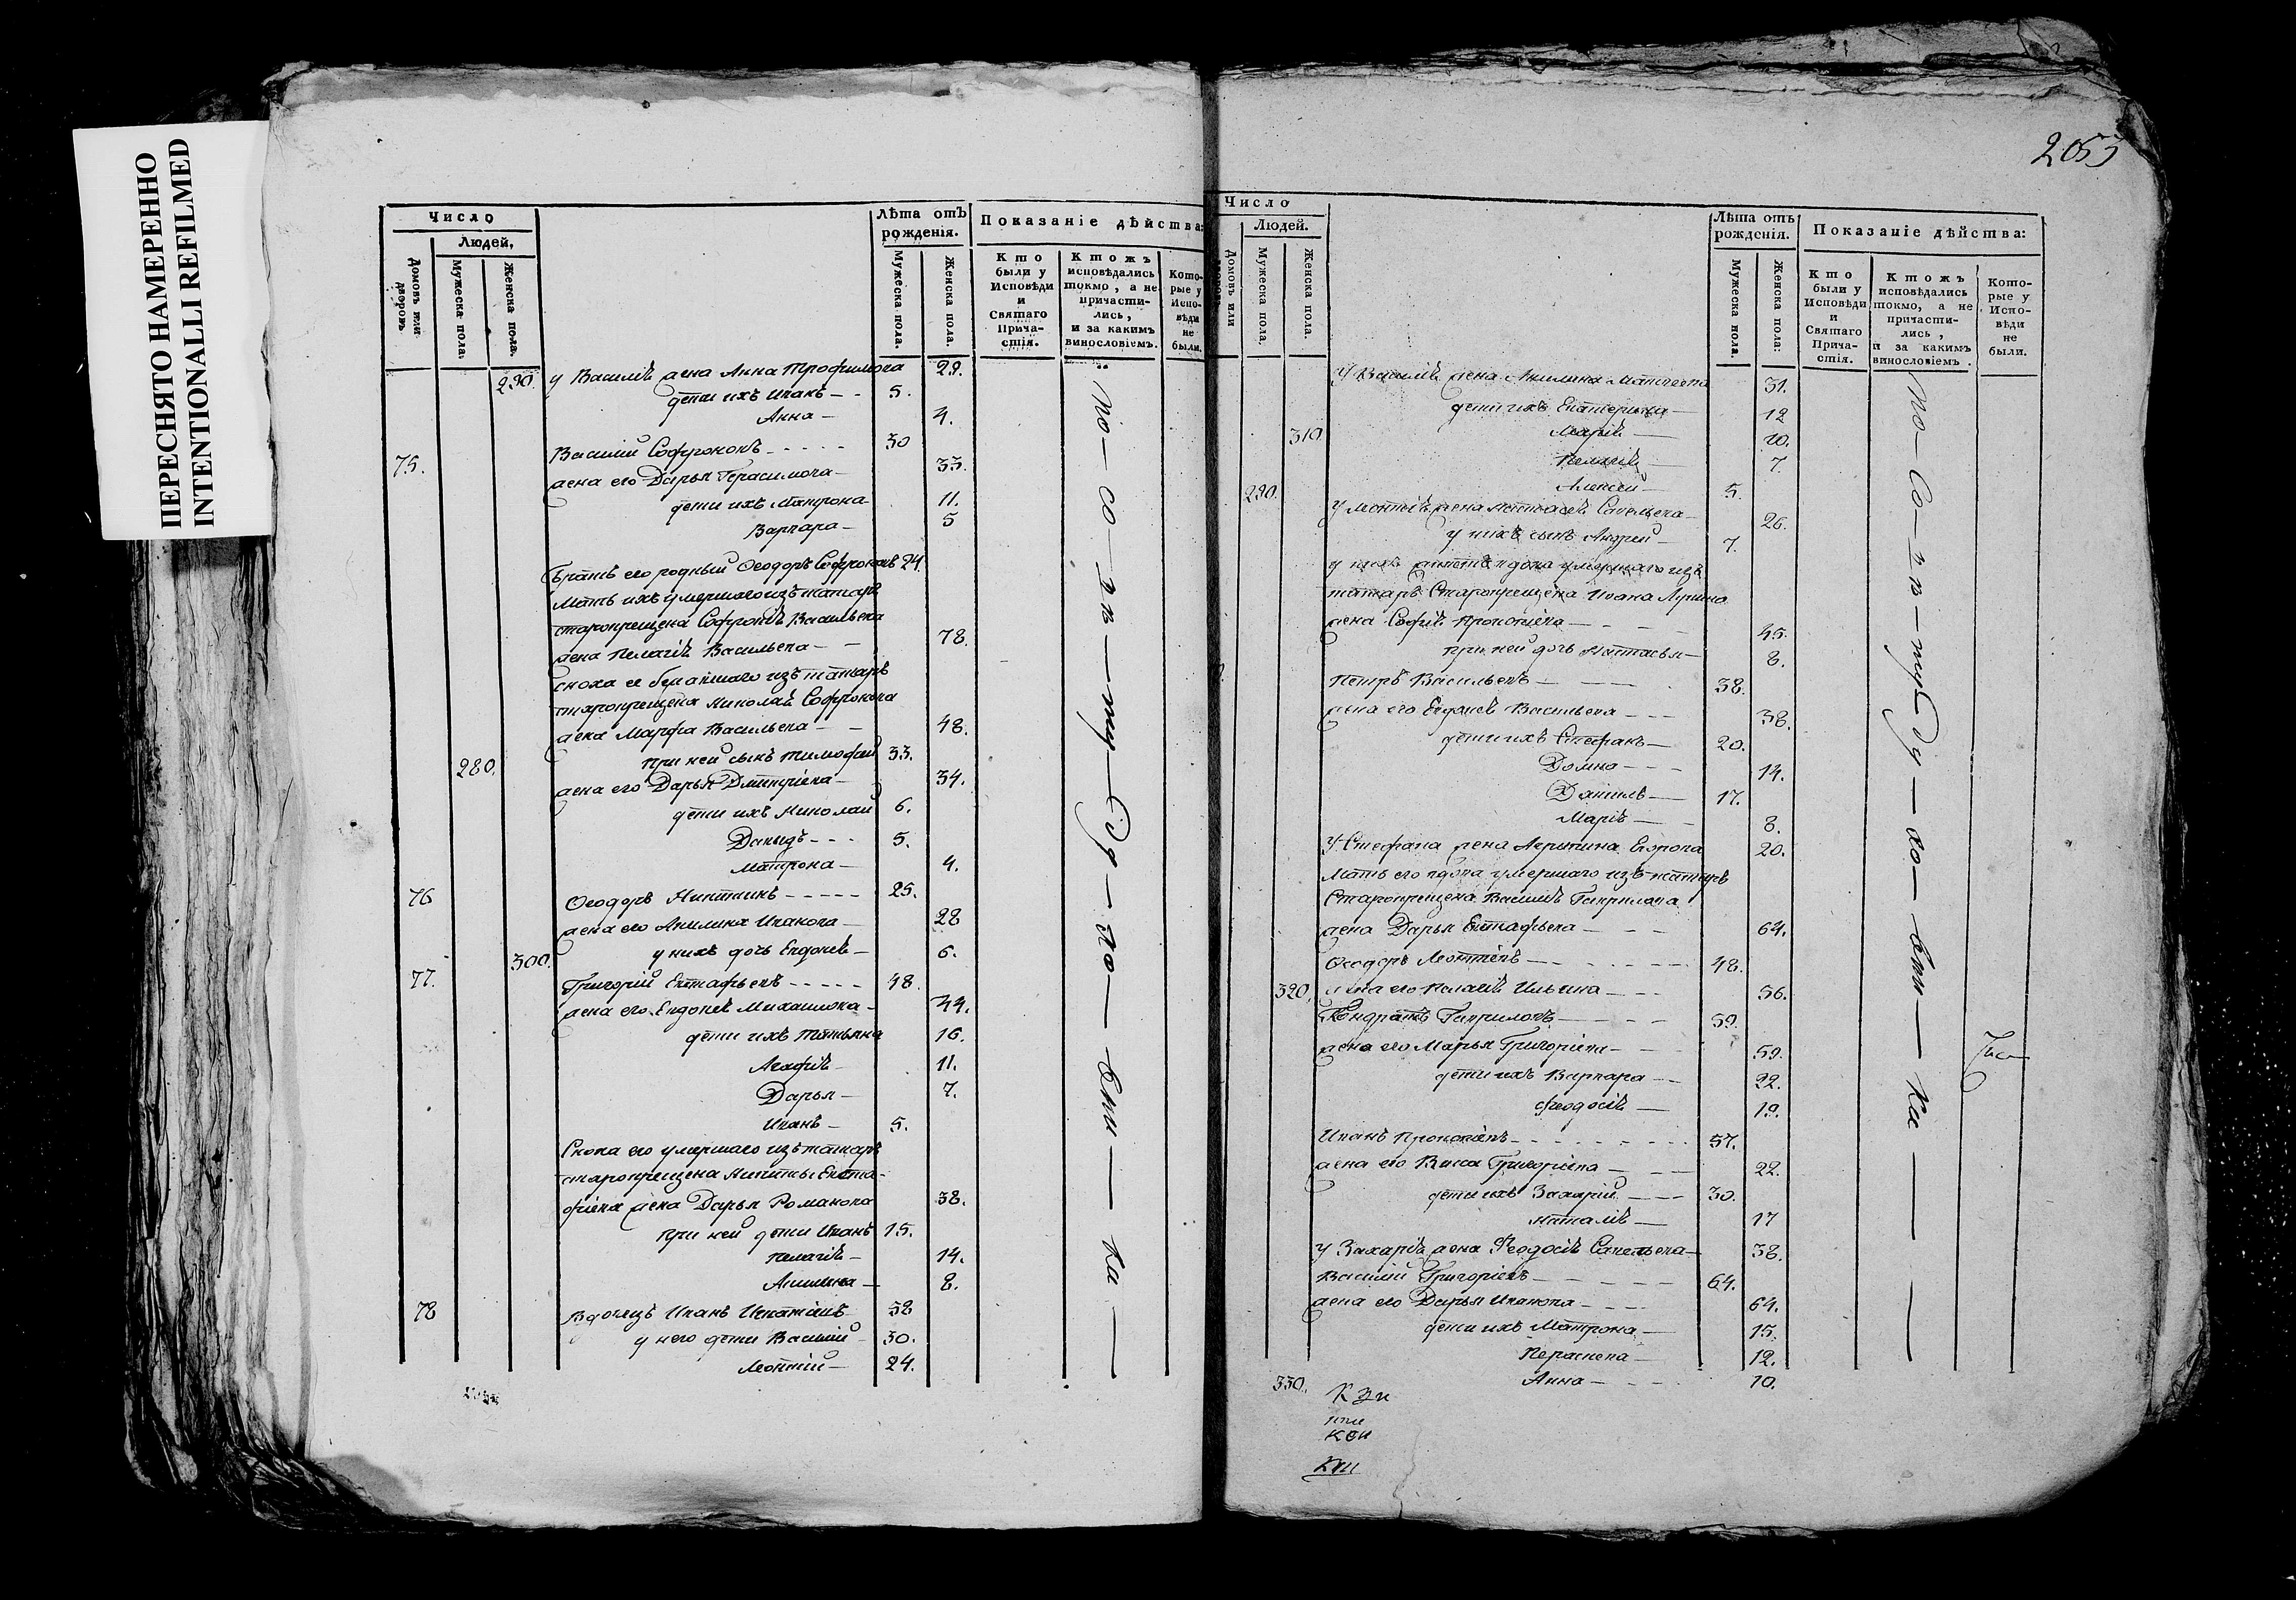 ПЕРЕСНЯТО НАМЕРЕННО
INTENTIONALLI REFILMED
Число
Людей,
Домовъ или дворовъ
Мужеска пола.
Женска пола.
Лѣта отъ рожденія.
Мужеска пола.
Женска пола.
Показаніе дѣйства:
Кто были у Исповѣди и Святаго Прича-стія.
Ктожъ исповѣдались токмо, а не причасти-лись, и за какимъ винословіемъ.
Кото-рые у Испо-вѣди не были.
290. у Василія жена Анна Трофимова 29.
дети ихъ Иванъ 5.
Анна 4.
75. Василий Софроновъ 30
жена его Дарья Герасимова 33.
дети ихъ Матрона 11.
Варвара 5
братъ его родный Ѳеодоръ Софроновъ 24.
Мать ихъ умершаго изъ татаръ
старокрещена Софрона Васильева
жена Пелагія Васильева 78.
сноха ее бежавшаго изъ татаръ
старокрещена Николая Софронова
жена Марфа Васильева 48.
280. при ней сынъ Тимофей 33.
жена его Дарья Дмитріева 34.
дети ихъ Николай 6.
Давыдъ 5.
Матрона 4.
76 Ѳеодоръ Никитинъ 25.
жена его Акилина Иванова 28
300. у нихъ дочь Евдокія 6.
77. Григорій Евтафьевъ 48.
жена его Евдокія Михаилова 44.
дети ихъ Татьяна 16.
Агафія 11.
Дарья 7.
Иванъ 5.
Сноха его умершаго изъ татаръ
старокрещена Никиты Евста-
фіева жена Дарья Романова 38.
при ней дети Иванъ 15.
Пелагія 14.
Акилина 8.
78 Вдовецъ Иванъ Игнатіевъ 58
у него дети Василий 30.
Леонтій 24.
2053
Число
Людей.
Домовъ или
Мужеска пола.
Женска пола.
Лѣта отъ рожденія.
Мужеска пола.
Женска пола:
Показаніе дѣйства:
Кто были у Исповѣди и Святаго Прича-стія.
Ктожъ исповѣдались токмо, а не причасти-лись, и за какимъ винословіемъ.
Кото-рые у Испо-вѣди не были.
У Василія жена Акилина Матвеева 31.
дети ихъ Екатерина 12
310 Марія 10.
Пелагія 7.
290. Алексей 5.
У Леонтія жена Настасія Савельева 26.
у нихъ сынъ Андрей 7.
татаръ Старокрещена Ивана
жена Софія Прокопіева 45.
при ней дочь Настасья 8.
Петръ Васильевъ 38.
жена его Евдокія Васильева 38.
дети ихъ Стефанъ 20.
Домна 14.
Данилъ 17.
Марія 8.
У Стефана жена Агрипина Егорова 20.
Мать его вдова умершаго изъ татаръ
Старокрещена Василія Гаврилова
жена Дарья Евтафьева 64.
Ѳеодоръ Леонтіевъ 48.
320. жена его Пелагія Ильина 56.
Кондратъ Гавриловъ 59.
жена его Марья Григоріева 59.
дети ихъ Варвара 22.
Феодосія 19.
Иванъ Прокопіевъ 57.
жена его Васса Григоріева 22.
дети ихъ Захарий 30.
Наталія 17
у Захарія жена Феодосія Савельева 38.
Василий Григоріевъ 64.
жена его Дарья Иванова 64.
дети ихъ Матрона 15.
Параскева 12.
330. Анна 10.